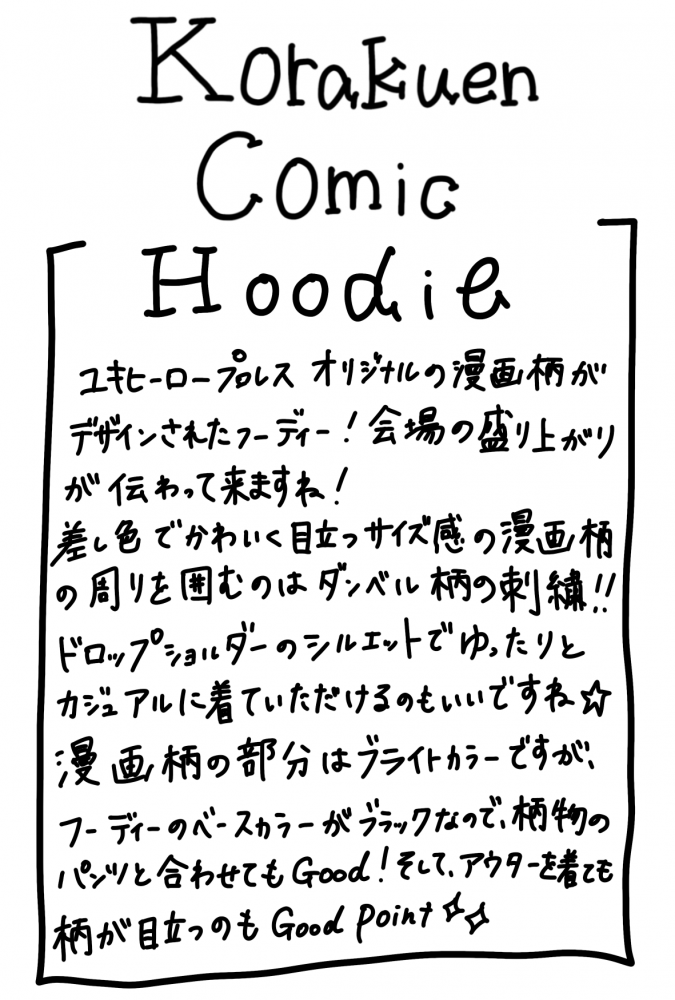 Korakuen
Comic
Hoodie
ユキヒーロープロレス オリジナルの漫画柄が
デザインされたフーディー!会場の盛り上がり
が伝わって来ますね!
差し色でかわいく目立つサイズ感の漫画柄
の周りを囲むのはダンベル柄の刺繍!!
ドロップショルダーのシルエットでゆったりと
カジュアルに着ていただけるのもいいですね☆
漫画柄の部分はブライトカラーですが、
フーディーのベースカラーがブラックなので、柄物の
パンツと合わせてもGood!そして、アウターを着ても
柄が目立つのもGood point✧✧